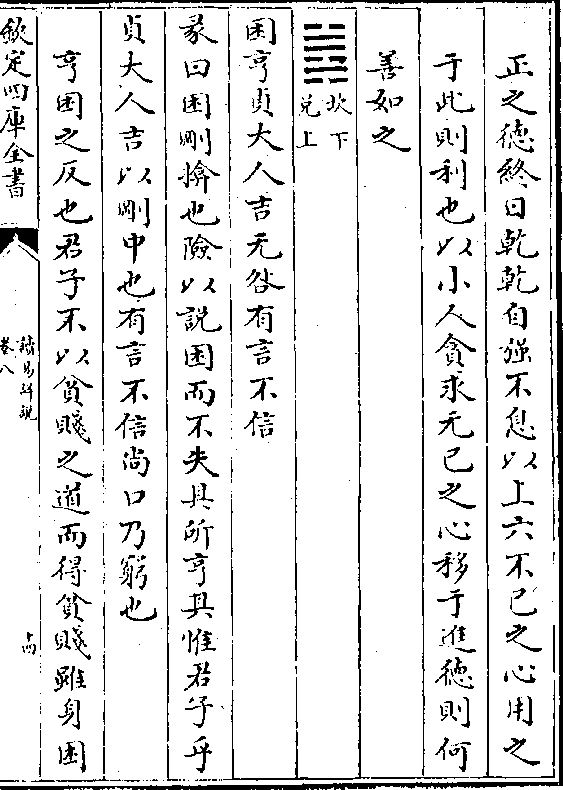 正之德終日乾乾自强不息以上六不已之心用之
于此則利也以小人貪求无已之心移于進德則何
善如之
䷮
坎下
兑上
困亨貞大人吉无咎有言不信
彖曰困剛揜也險以說困而不失其所亨其惟君子乎
貞大人吉以剛中也有言不信尚口乃窮也
亨困之反也君子不以貧賤之道而得貧賤雖身困
欽定四庫全書
讀易詳說
卷八
十四